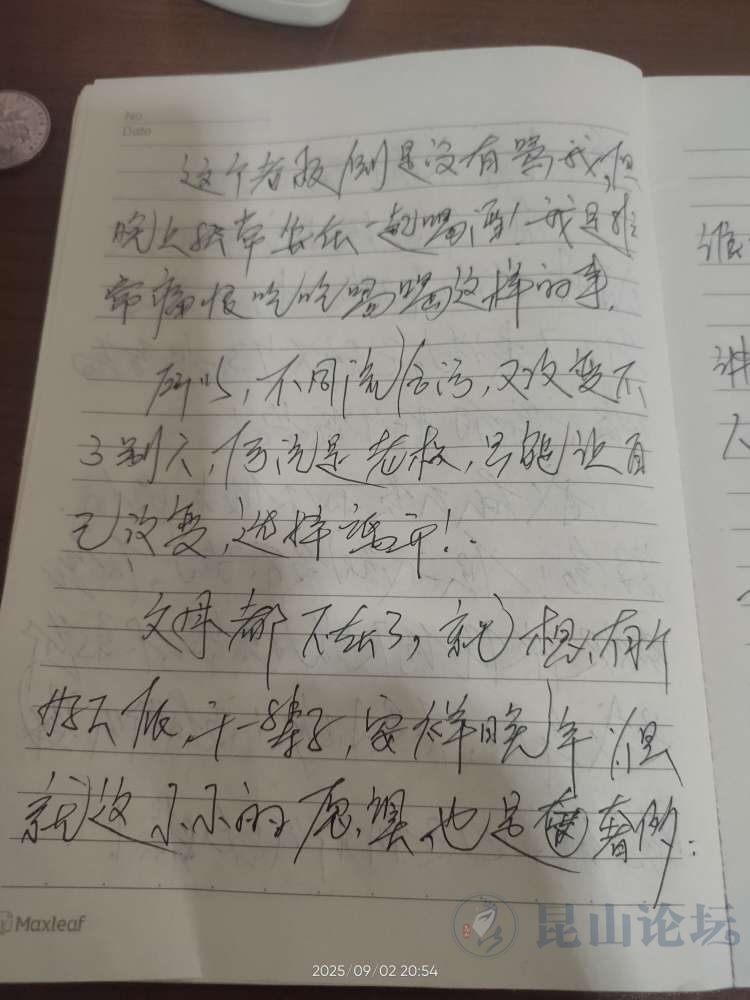 No
Date
这个老板倒是没有骂我,但
晚上经常坐在一起喝酒!我是非
常痛恨吃吃喝喝这样的事.
所以,不同流合污,又改变不
了别人,何况是老板,只能让自
己改变,选择离开!
父母都不在了,就想有个
好老板,干一辈子,安祥晚年 但
就这小小的愿望也是奢侈:
谁
讲
人
Maxleaf
昆山论坛
2025/09/02 20:54